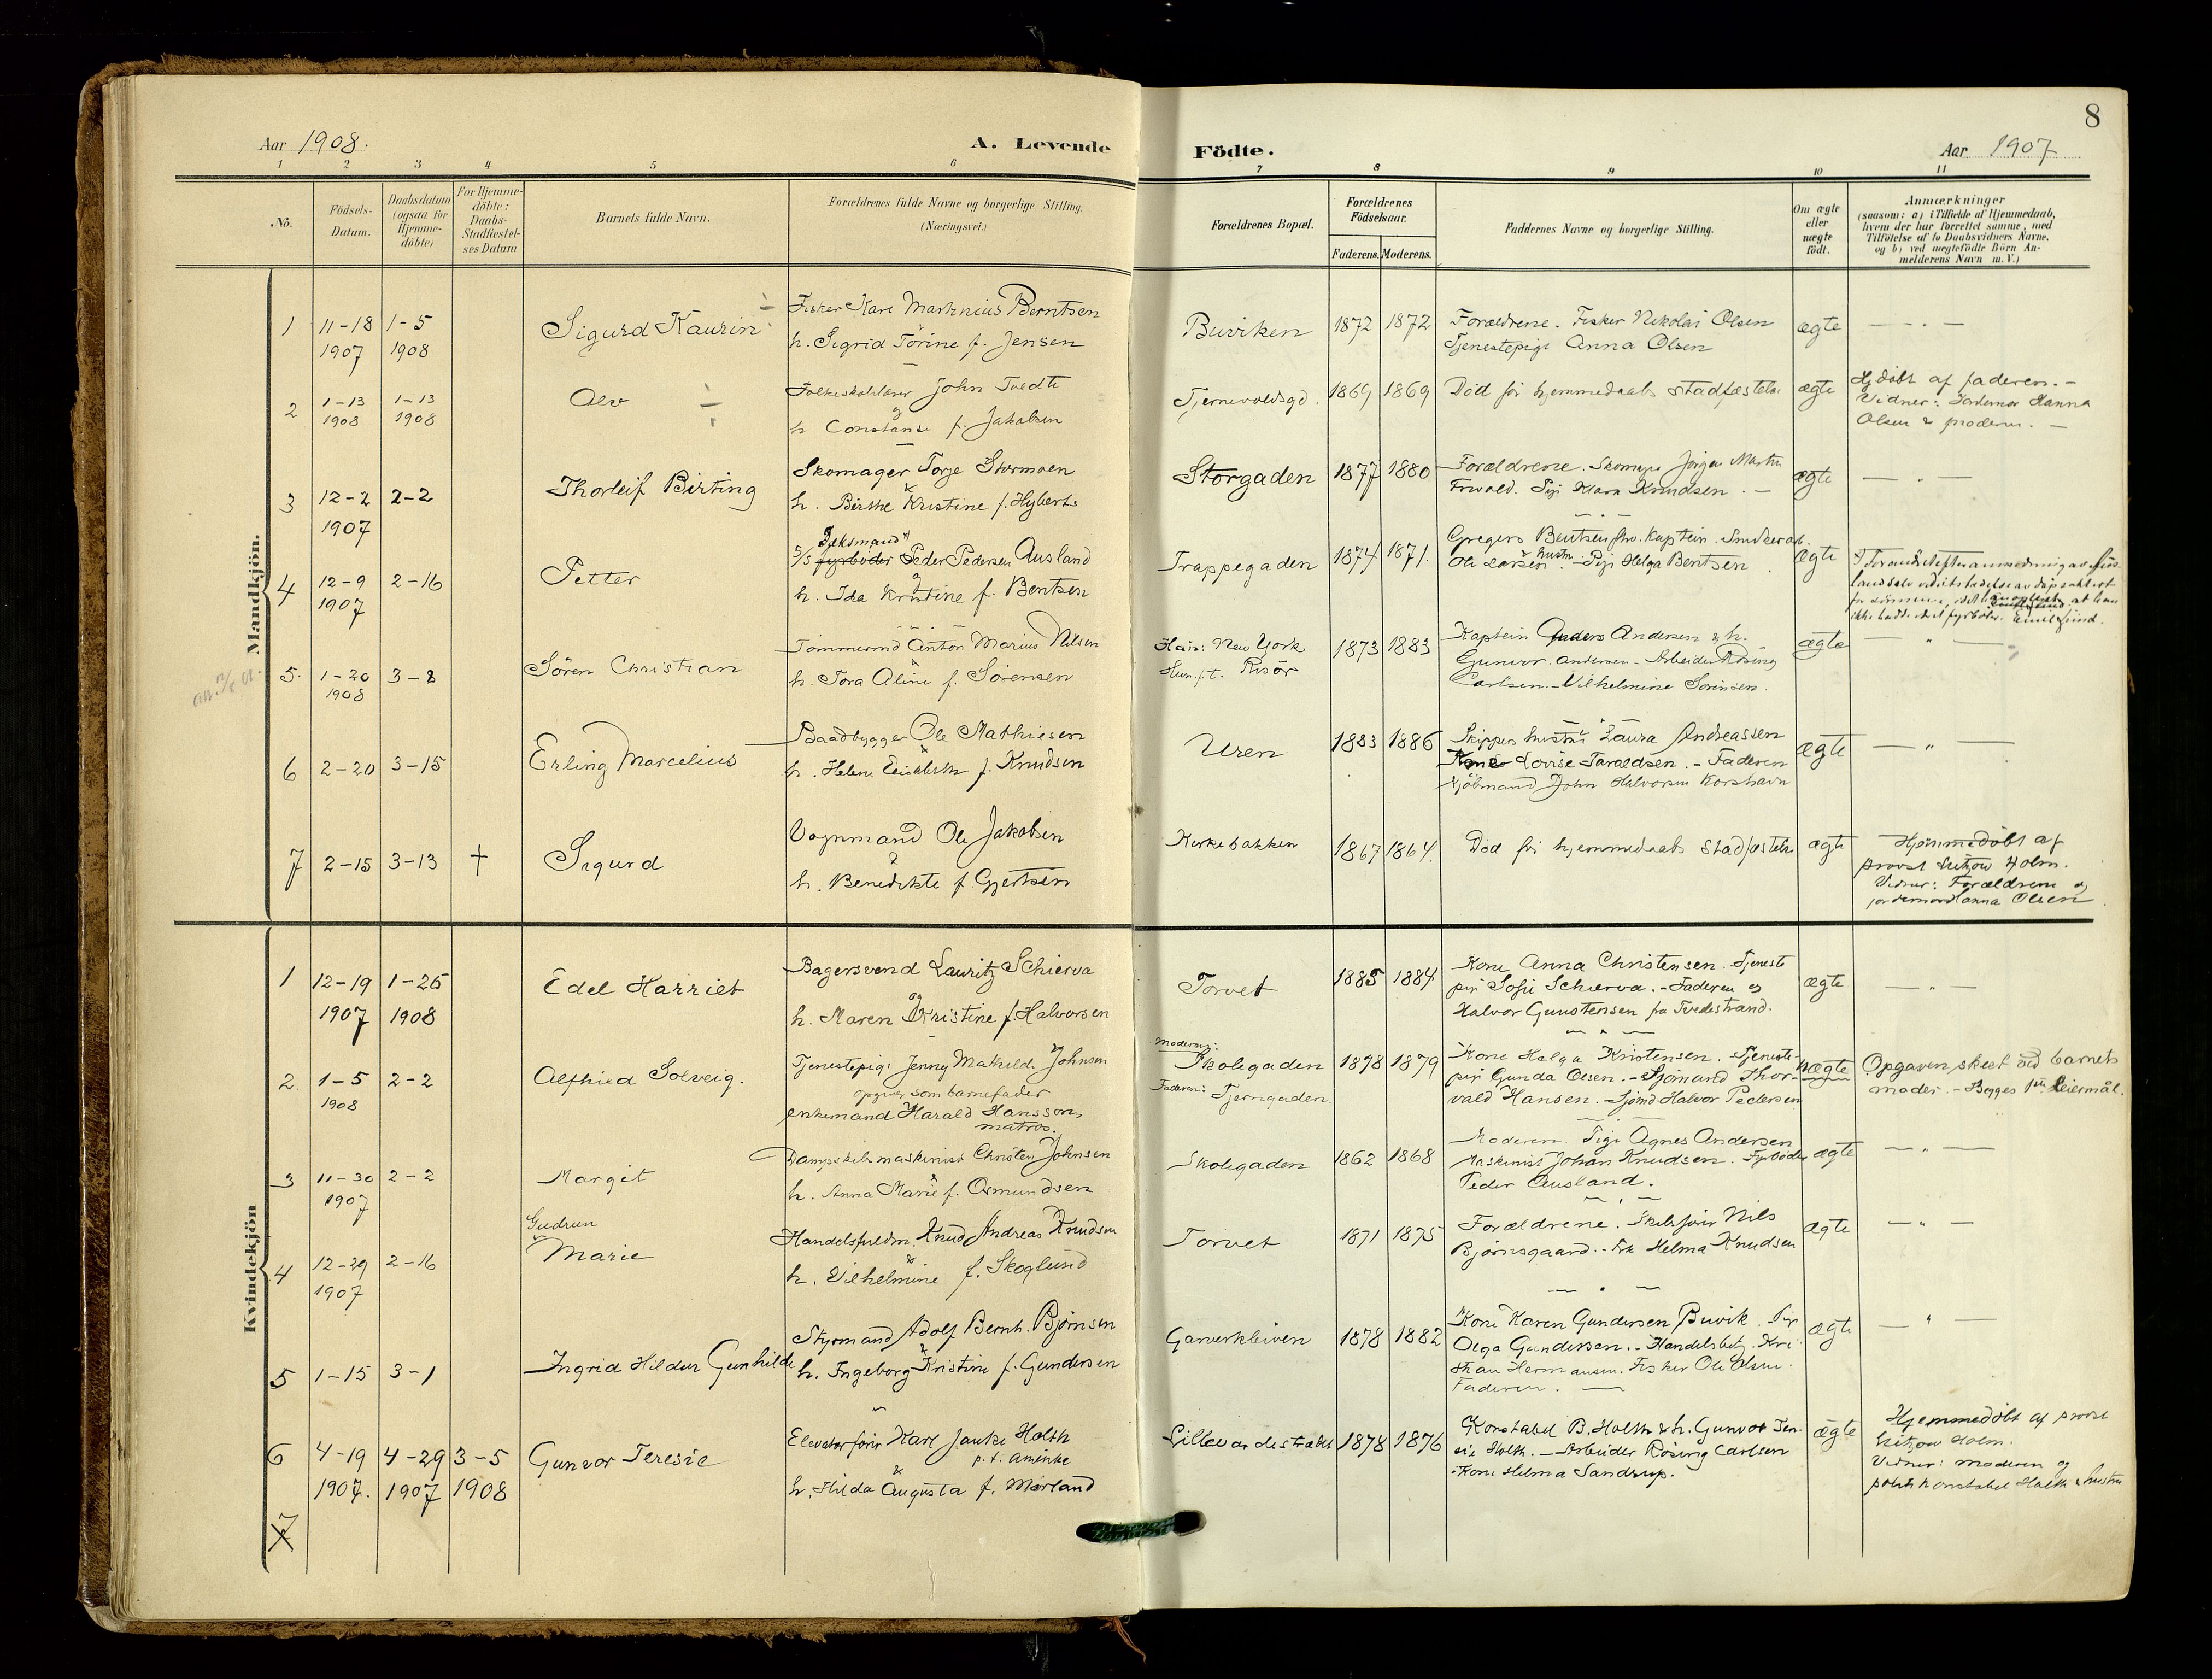 8
Aar 1908.
A. Levende
Födte.
Aar 1907
1 2 3 4 5 6 7 8 9 10 11
No.
Födsels-
Datum.
Daabsdatum
(ogsaa för
Hjemme-
döbte)
For Hjemme-
döbte:
Daabs-
Stadfæstel-
ses Datum
Barnets fulde Navn.
Forældrenes fulde Navne og borgerlige Stilling.
(Næringsvei.)
Forældrenes Bopæl.
Forældrenes
Födselsaar.
Faderens. Moderens.
Faddernes Navne og borgerlige Stilling.
Om ægte
eller
uægte
födt.
Anmærkninger
(saasom: a) i Tilfælde af Hjemmedaab,
hvem der har forrettet samme, med
Tilföielse af to Daabsvidners Navne,
og b) ved uægtefödte Börn An-
melderens Navn m. V.)
Mandkjön.
1
11-18
1907
1-5
1908
Sigurd Kaurin
Fisker Karl Martinius Berntsen
h. Sigrid Torine f. Jensen
Buviken
1872 1872
Forældrene. Fisker Nikolai Olsen
Tjenestepige Anna Olsen
ægte
2
1-13
1908
1-13
1908
Alv
Folkeskolelærer John Tvedte
og
h Constanse f. Jakobsen
Tjernevoldsgd.
1869 1869
Död för hjemmedaabs stadfæstelse
ægte
Hjdöbt af faderen. -
Vidner: Jordemor Hanna
Olsen & moderen. -
3
12-2
1907
2-2
Thorleif Birting
Skomager Torje Stormoen
&
h. Birthe Kristine f. Hyberts
Storgaden
1877 1880
Forældrene. Skomager Jörgen Martin
Pige Klara Knudsen. -
ægte
4
12-9
1907
2-16
Petter
Dæksmand
S/S fyrböder Peder Pedersen Ausland
og
h. Ida Kristine f. Bentsen
Trappegaden
1874 1871
Gregers Bentsen fhv. Kaptein.
Ole Larsen hustru. - Pige Helga Bentsen
ægte
5.
1-20
1908
3-8
Sören Christian
Tömmermd Anton Marius Nilsen
&
h. Tora Aline f. Sörensen
Han: New York
Hun p.t. Risör
1873 1883
Kaptein Anders Andersen & h.
Gunvor Andersen - Arbeider Rösing
Carlsen. - Vilhelmine Sörensen.
ægte
6
2-20
3-15
Erling Marcelius
Baadbygger Ole Mathiesen
&
h. Helene Elisabeth f. Knudsen
Uren
1883 1886
Skippers hustru Laura Andreassen
Kone Lovise Taraldsen. - Faderen
Kjöbmand John Halvorsen Korshavn
ægte
7
2-15
3-13
†
Sigurd
Vognmand Ole Jakobsen
&
h. Benedikte f. Gjertsen
Kirkebakken
1867 1864.
Död för hjemmedaabs stadfæstelse
ægte
Hjemmedöbt af
provst Lützow Holm.
Vidner: Forældrene og
jordemor Hanna Olsen
Kvindekjön
1
12-19
1907
1-26
1908
Edel Harriet
Bagersvend Lauritz Schierva
og
h. Maren Kristine f. Halvorsen
Torvet
1885 1884
Kone Anna Christensen. Tjeneste
pige Sofie Schierva. - Faderen og
Halvor Gunstensen fra Tvedestrand.
ægte
2.
1-5
1908
2-2
Alfhild Solveig.
Tjenestepige Jenny Mathilde Johnsen
opgiver som barnefader
enkemand Harald Hansson,
matros.
Moderens:
Skolegaden
Faderen: Tjerngaden
1878 1879
Kone Helga Kristensen. Tjeneste-
pige Gunda Olsen. - Sjömand Thor-
vald Hansen. - Sjömd Halvor Pedersen
uægte
Opgaven skeet ved barnets
moder. - Begges 1ste leiermål.
3
11-30
1907
2-2
Margit
Dampskibsmaskinist Christen Johnsen
&
h. Anna Marie f. Osmundsen
Skolegaden
1862 1868
Moderen. Pige Agnes Andersen
Maskinist Johan Knudsen. Fyrböder
Peder Ausland.
ægte
4
12-29
1907
2-16
Gudrun
Marie
Handelsfuldm. Knud Andreas Knudsen
&
h. Vilhelmine f. Skoglund
Torvet
1871 1875
Forældrene. Skibsförer Nils
Björnsgaard. - Frk Helma Knudsen
ægte
5
1-15
3-1
Ingrid Hildur Gunhilde
Styrmand Adolf Bernh. Björnsen
&
h. Ingeborg Kristine f. Gundersen
Garverkleiven
1878 1882
Kone Karen Gundersen Buvik. Pige
Olga Gundersen. - Handelsbetj. Kri
stian Hermansen. Fisker Ole Olsen.
Faderen. -
ægte
6
4-19
1907.
4-29
1907
3-5
1908
Gunvor Teresie
Elevatorförer Karl Jauke Holth
p.t. Amerika
&
h. Hilda Augusta f. Mörland
Lillevandestrædet
1878 1876
Konstabel B. Holth & h. Gunvor Tere
sie Holth. - Arbeider Rösing Carlsen
Kone Helma Sandrup.
ægte
Hjemmedöbt af provst
Lützow Holm.
Vidner: moderen og
politikonstabel Holth & hustru
7